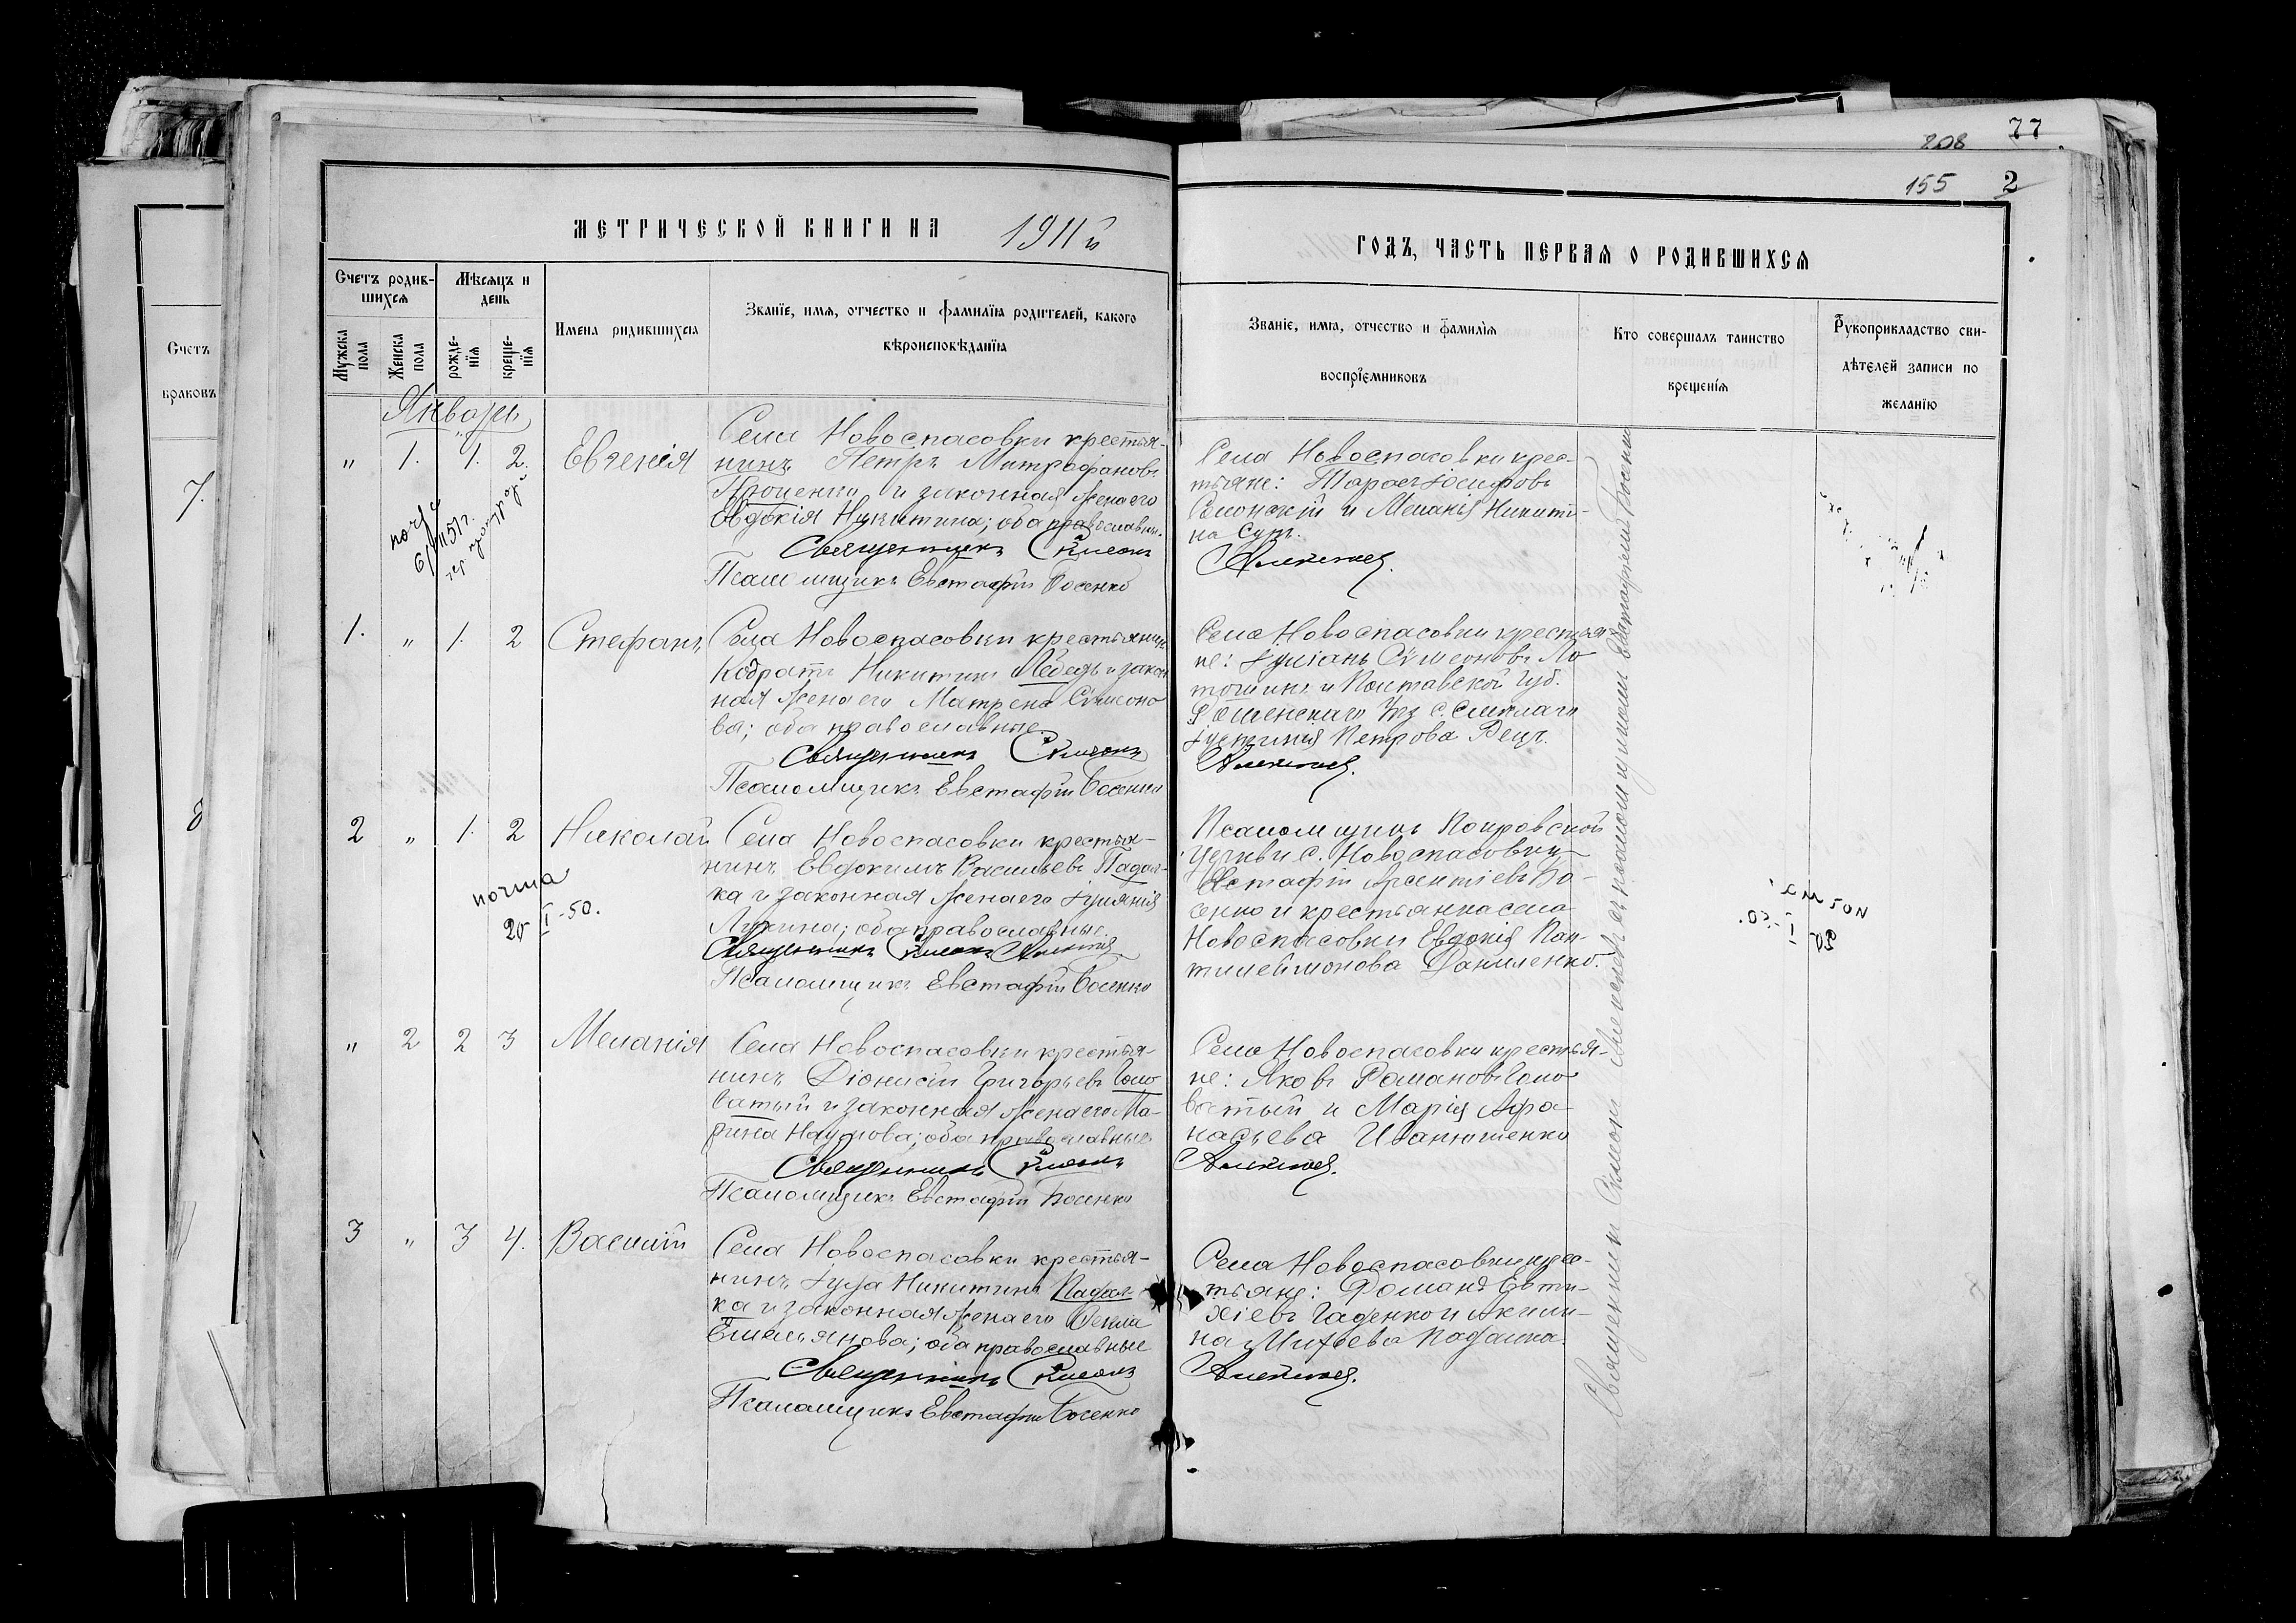 77
208
155 2
МЕТРИЧЕСКОЙ КНИГИ НА 1911 й
ГОДЪ, ЧАСТЬ ПЕРВАЯ О РОДИВШИХСЯ
Счетъ
браковъ
7.
8
Счетъ родив-
шихся
Мѣсяцъ и
день
Мужска
пола
Женска
пола
рожде-
нія
креще-
нія
Имена родившихся
Званіе, имя, отчество и фамилія родителей, какого
вѣроисповѣданія
Званіе, имя, отчество и фамилія
воспріемниковъ
Кто совершалъ таинство
крещенія
Рукоприкладство сви-
дѣтелей записи по
желанію
Январь
" 1. 1. 2. Евгенія
Села Новоспасовки крестья-
нинъ Петръ Митрофановъ
Проценко и законная жена его
Евдокія Никитина; оба православные.
Священникъ Симеонъ
Псаломщикъ Евстафій Босенко
Села Новоспасовки крес-
тьяне: Тарасъ Іосифовъ
и Меланія Никити-
на
Алексѣев.
1. " 1. 2 Стефанъ
Села Новоспасовки крестьянинъ
Кодратъ Никитинъ Лебедь и закон
ная жена его Матрена Симеоно
ва; оба православные
Священникъ Симеонъ
Псаломщикъ Евстафій Босенко
Села Новоспасовки крестья
не: Іуліанъ Симеоновъ Ло
и Полтавской губ.
Іустинія Петрова
Алексѣев.
2 " 1. 2 Николай
Села Новоспасовки крестья-
нинъ Евдокимъ Васильевъ Падал-
ка и законная жена его Іуліанія
Лукина; оба православные.
Священникъ Симеонъ Алексѣев
Псаломщикъ Евстафій Босенко
почта
20 I-50.
Псаломщикъ Покровской
церкви с. Новоспасовки
Евстафій Арсентіевъ Бо-
сенко и крестьянка села
Новоспасовки Евдокія Пан-
телеймонова Даниленко.
" 2 2 3 Меланія
Села Новоспасовки крестья-
нинъ Діонисій Григорьевъ Голо
ватый и законная жена его Ма-
рина Наумова; оба православные
Священникъ Симеонъ
Псаломщикъ Евстафій Босенко
Села Новоспасовки крестья-
не: Яковъ Романовъ Голо
ватый и Марія Афа-
насьева Иванющенко
Алексѣев.
3 " 3 4. Василій
Села Новоспасовки крестья-
нинъ Іуда Никитинъ Падал-
ка и законная жена его Ѳекла
Емельянова; оба православные
Священникъ Симеонъ
Псаломщикъ Евстафій Босенко
Села Новоспасовки крес-
тьяне: Романъ Евти-
хіевъ Гаденко и Акили-
на Михеева Падалка
Алексѣев.
Священникъ Симеонъ Алексѣев съ псаломщикомъ Евстафіемъ Босенко